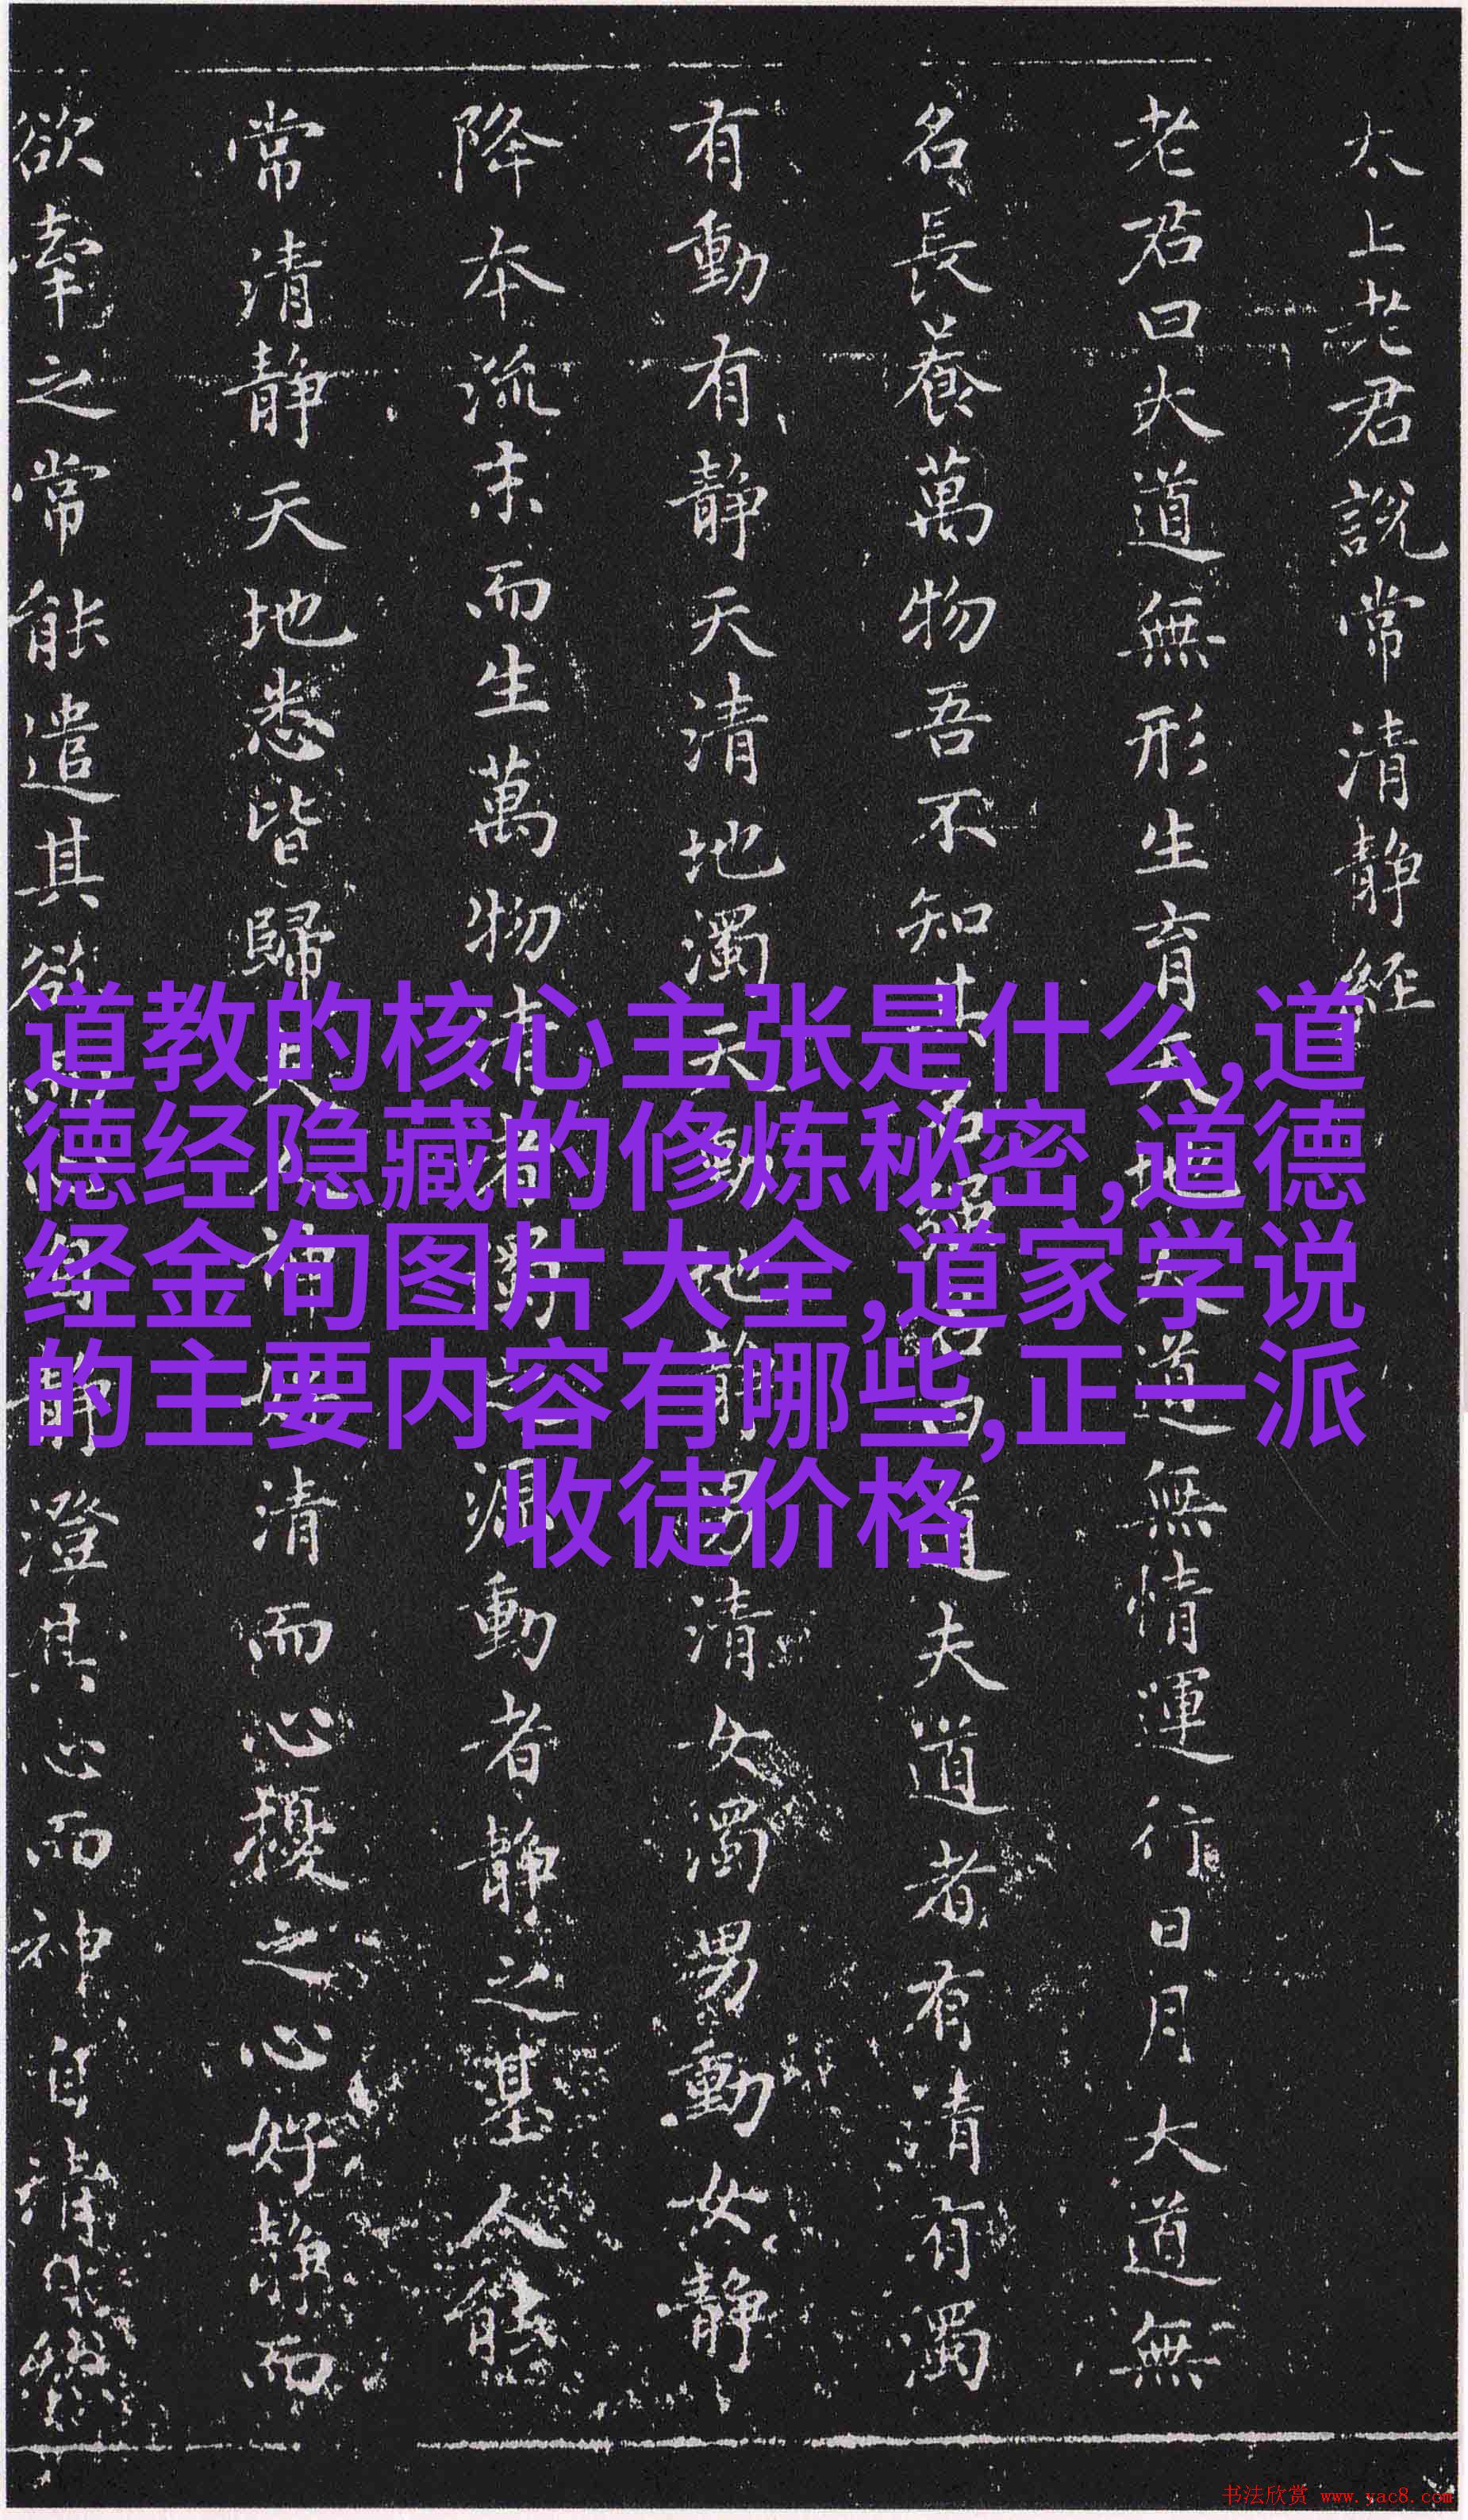 太上老君説常清静經
老君曰大道無形生育天地大道無情運行日月大道無
名長養萬物吾不知其名強名曰道夫道者有清有濁
有動有静天清地濁天動地静男清女濁男動女静
降本流末而生萬物清者濁之源動者静之基人能
常清静天地悉皆歸夫人神好清而心擾之心好静而
欲牽之常能遣其欲而心自静澄其心而神自清自然
道教的核心主张是什么,道
德经隐藏的修炼秘密,道德
经金句图片大全,道家学说
的主要内容有哪些,正一派
收徒价格
书法欣赏 www.yac8.com